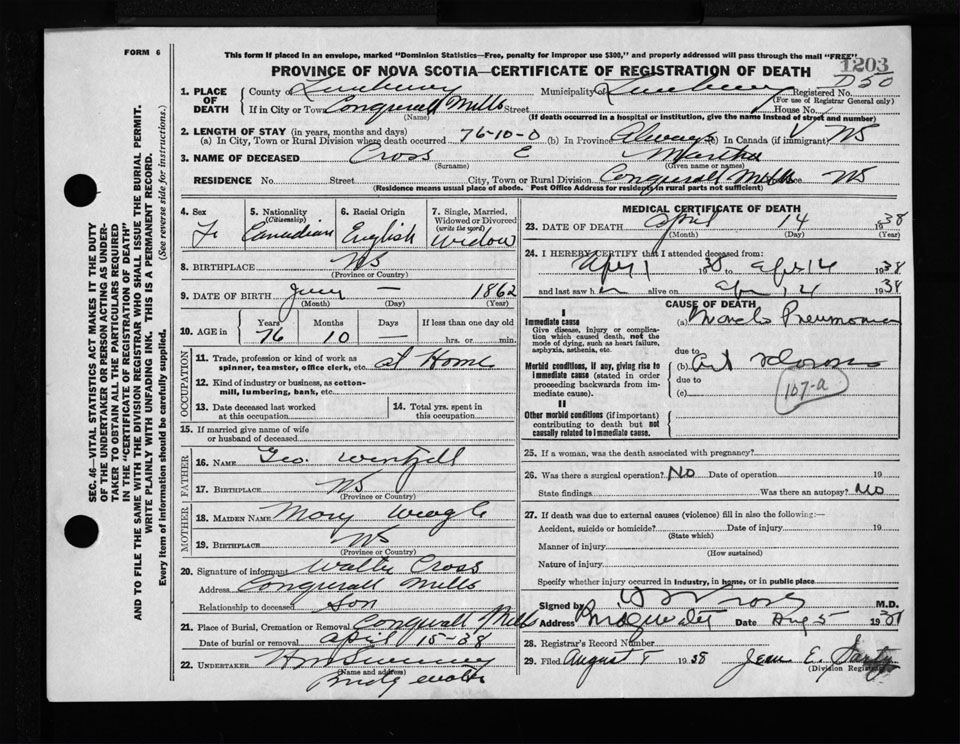 FORM 6
This form if placed in an envelope, marked "Dominion Statistics—Free, penalty for improper use $300," and properly addressed will pass through the mail "FREE"
1203
PROVINCE OF NOVA SCOTIA—CERTIFICATE OF REGISTRATION OF DEATH
D50
1. PLACE OF DEATH
County of Lunenburg Municipality of Lunenburg Registered No.
(For use of Registrar General only)
If in City or Town Conquerall Mills Street House No.
(Name) (If death occurred in a hospital or institution, give the name instead of street and number)
2. LENGTH OF STAY (in years, months and days)
(a) In City, Town or Rural Division where death occurred 76-10-0 (b) In Province Always (c) In Canada (if immigrant) NS
3. NAME OF DECEASED Cross E Martha
(Surname) (Given name or names)
RESIDENCE No. Street City, Town or Rural Division Conquerall Mills NS
(Residence means usual place of abode. Post Office Address for residents in rural parts not sufficient)
4. Sex F.
5. Nationality (Citizenship) Canadian
6. Racial Origin English
7. Single, Married, Widowed or Divorced (write the word) Widow
8. BIRTHPLACE NS
(Province or Country)
9. DATE OF BIRTH — 1862
(Month) (Day) (Year)
10. AGE in
Years Months Days If less than one day old
76 10 — hrs. or min.
OCCUPATION
11. Trade, profession or kind of work as spinner, teamster, office clerk, etc. at Home
12. Kind of industry or business, as cotton-mill, lumbering, bank, etc.
13. Date deceased last worked at this occupation
14. Total yrs. spent in this occupation
15. If married give name of wife or husband of deceased
FATHER
16. NAME Geo. Wentzell
17. BIRTHPLACE NS
(Province or Country)
MOTHER
18. MAIDEN NAME Mary
19. BIRTHPLACE NS
(Province or Country)
20. Signature of informant Walter Cross
Address Conquerall Mills
Relationship to deceased Son
21. Place of Burial, Cremation or Removal Conquerall Mills
Date of burial or removal April 15-38
22. UNDERTAKER Sweeney
(Name and address)
Bridgewater
MEDICAL CERTIFICATE OF DEATH
23. DATE OF DEATH April 14 1938
(Month) (Day) (Year)
24. I HEREBY CERTIFY that I attended deceased from:
Apr 1 1938 to Apr 14 1938
and last saw her alive on Apr 14 1938
CAUSE OF DEATH
I
Immediate cause
Give disease, injury or complication which caused death, not the mode of dying, such as heart failure, asphyxia, asthenia, etc.
(a) Broncho Pneumonia
due to
Morbid conditions, if any, giving rise to immediate cause (stated in order proceeding backwards from immediate cause).
(b) Art Sclerosis
due to
(c)
107-a
II
Other morbid conditions (if important) contributing to death but not causally related to immediate cause.
25. If a woman, was the death associated with pregnancy?
26. Was there a surgical operation? No Date of operation 19
State findings Was there an autopsy? No
27. If death was due to external causes (violence) fill in also the following:—
Accident, suicide or homicide? Date of injury 19
(State which)
Manner of injury
(How sustained)
Nature of injury
Specify whether injury occurred in industry, in home, or in public place
Signed by M.D.
Address Bridgewater Date Aug 5 1938
28. Registrar's Record Number
29. Filed August 8 1938 Jean E.
(Division Registrar)
SEC. 46—VITAL STATISTICS ACT MAKES IT THE DUTY
OF THE UNDERTAKER OR PERSON ACTING AS UNDER-
TAKER TO OBTAIN ALL THE PARTICULARS REQUIRED
IN THE "CERTIFICATE OF REGISTRATION OF DEATH"
AND TO FILE THE SAME WITH THE DIVISION REGISTRAR WHO SHALL ISSUE THE BURIAL PERMIT.
WRITE PLAINLY WITH UNFADING INK. THIS IS A PERMANENT RECORD.
Every item of information should be carefully supplied. (See reverse side for instructions.)